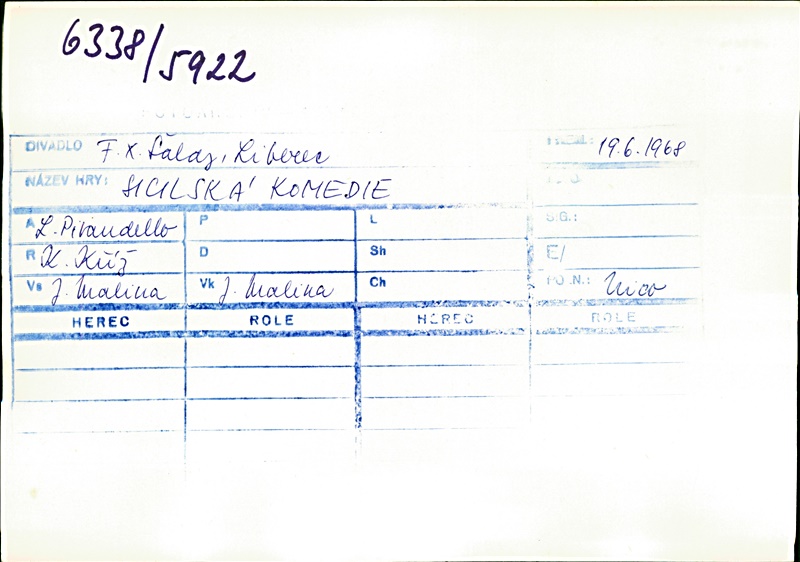 6338/5922
DIVADLO F. X. Šalay, Liberec 19.6.1968
NÁZEV HRY: SICILSKÁ KOMEDIE
A L. Pirandello P L S.G.:
R K. Kříž D Sh E/
Vs J. Malina Vk J. Malina Ch
HEREC ROLE HEREC ROLE